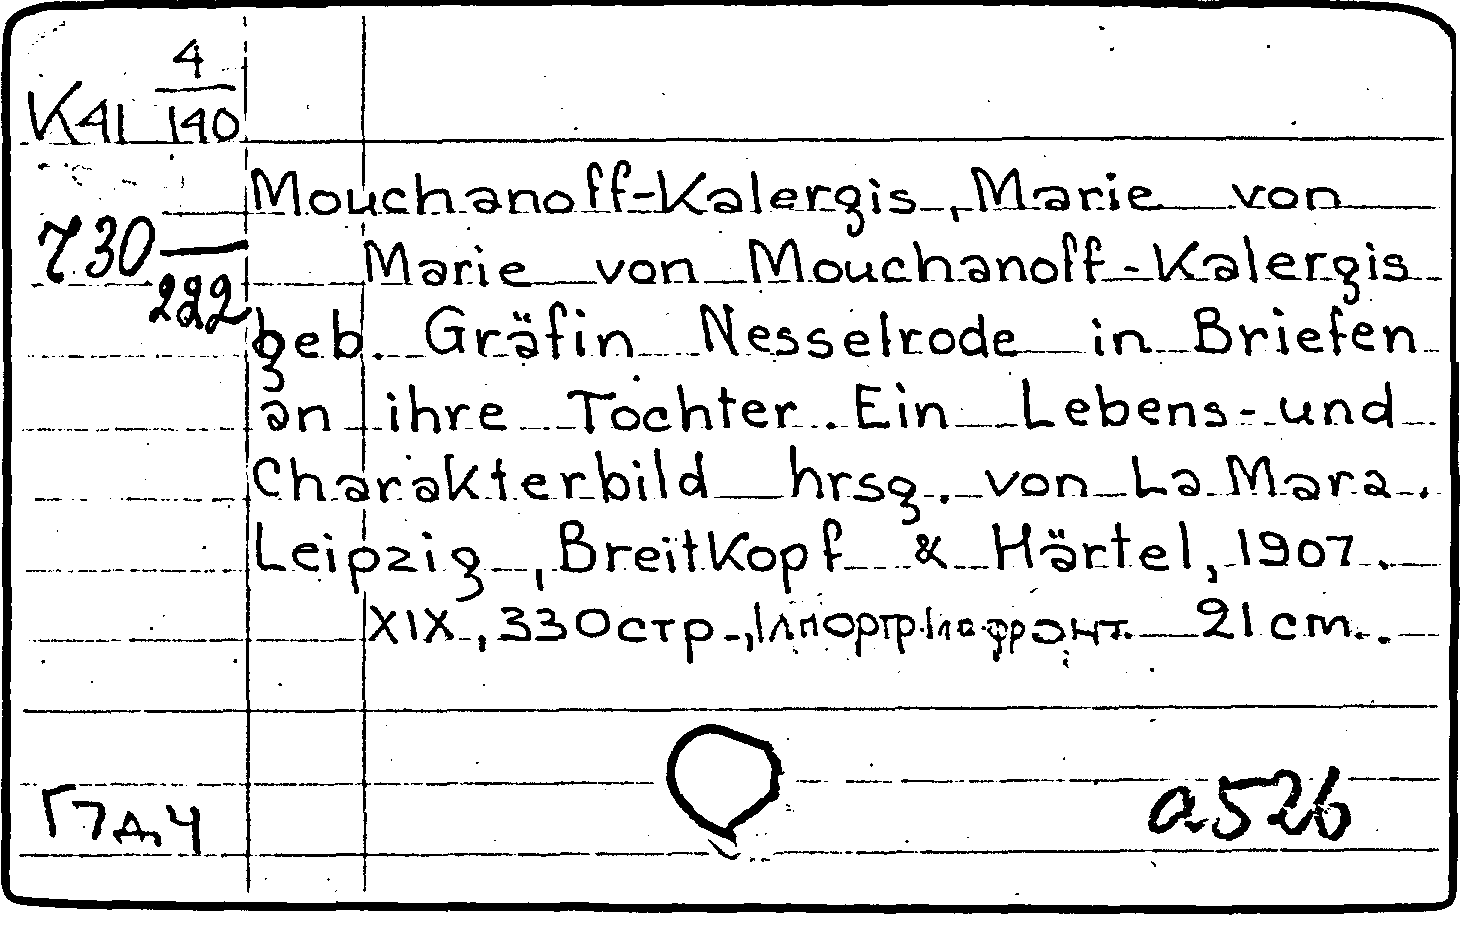 K41 4/140
Mouchanoff-Kalergis, Marie von
730/222
Marie von Mouchanoff-Kalergis
geb. Gräfin Nesselrode in Briefen
an ihre Tochter. Ein Lebens- und
Charakterbild hrsg. von La Mara.
Leipzig, Breitkopf & Härtel, 1907.
XIX, 330 стр., 1 л портр. на фронт. 21 cm.
a526